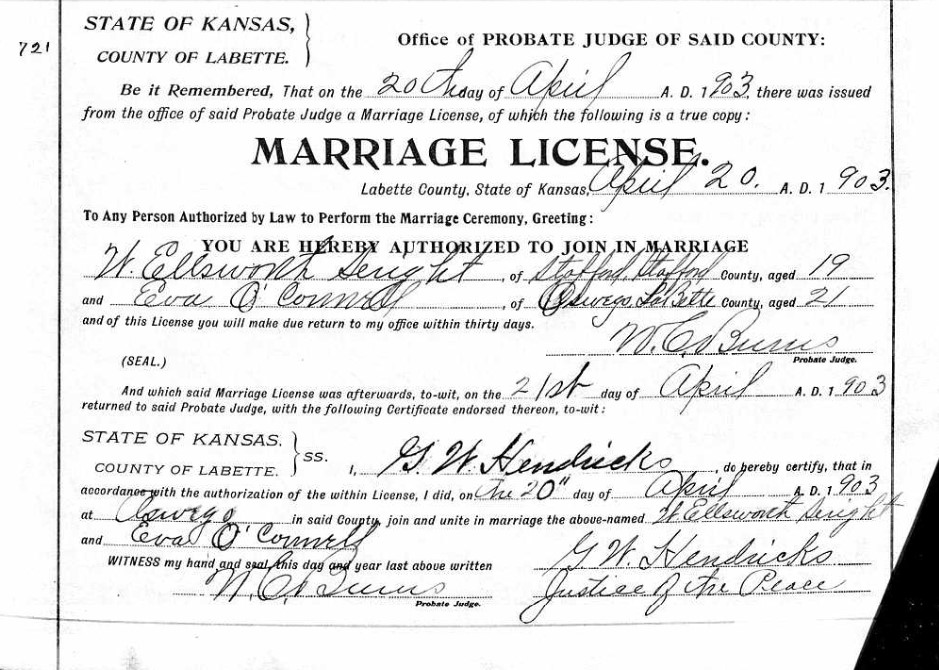 721
STATE OF KANSAS,
COUNTY OF LABETTE.
Office of PROBATE JUDGE OF SAID COUNTY:
Be it Remembered, That on the 20th day of April A. D. 1903, there was issued
from the office of said Probate Judge a Marriage License, of which the following is a true copy:
MARRIAGE LICENSE.
Labette County, State of Kansas, April 20. A. D. 1903.
To Any Person Authorized by Law to Perform the Marriage Ceremony, Greeting:
YOU ARE HEREBY AUTHORIZED TO JOIN IN MARRIAGE
W. Ellsworth , of Stafford, Stafford County, aged 19
and Eva O'Connell , of Oswego, LaBette County, aged 21
and of this License you will make due return to my office within thirty days.
W. C. Burns
(SEAL.)
Probate Judge.
And which said Marriage License was afterwards, to-wit, on the 21st day of April A. D. 1903
returned to said Probate Judge, with the following Certificate endorsed thereon, to-wit:
STATE OF KANSAS,
COUNTY OF LABETTE.
SS.
I, G. W. Hendricks , do hereby certify, that in
accordance with the authorization of the within License, I did, on the 20" day of April A. D. 1903
at Oswego in said County, join and unite in marriage the above-named W. Ellsworth
and Eva O'Connell
WITNESS my hand and seal, this day and year last above written
G. W. Hendricks
W. C. Burns
Probate Judge.
Justice of the Peace